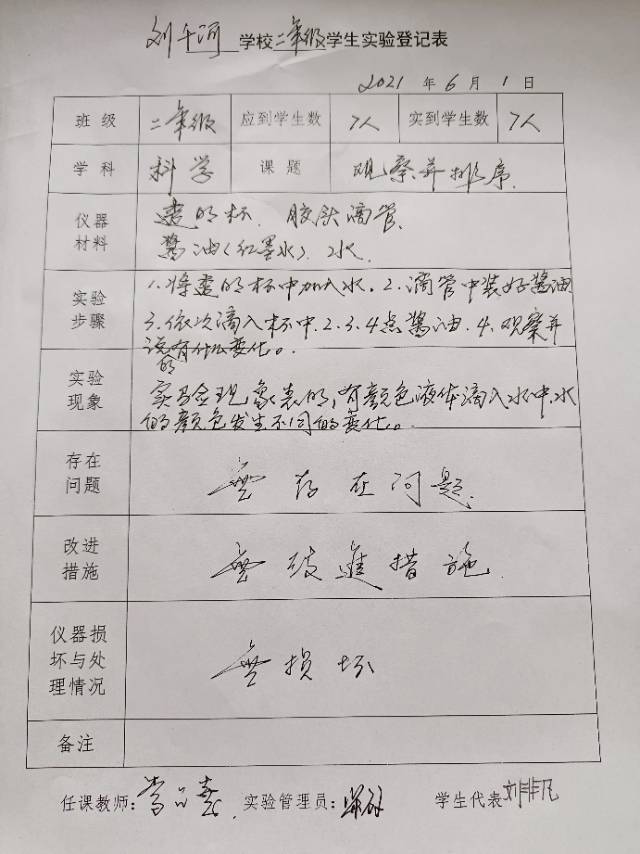 刘千河 学校二年级学生实验登记表
2021 年 6 月 1 日
班 级 二年级 应到学生数 7人 实到学生数 7人
学 科 科学 课 题 观察并排序
仪器材料 透明杯. 胶头滴管.
酱油(红墨水). 水.
实验步骤 1.将透明杯中加入水. 2.滴管中装好酱油
3.依次滴入杯中.2.3.4点酱油.4.观察并
说有什么变化。
实验现象 实验现象表明,有颜色液体滴入水中.水
的颜色发生不同的变化。
存在问题 無存在问题.
改进措施 無改進措施.
仪器损坏与处理情况 無损坏
备注
任课教师: 实验管理员: 学生代表 刘非凡